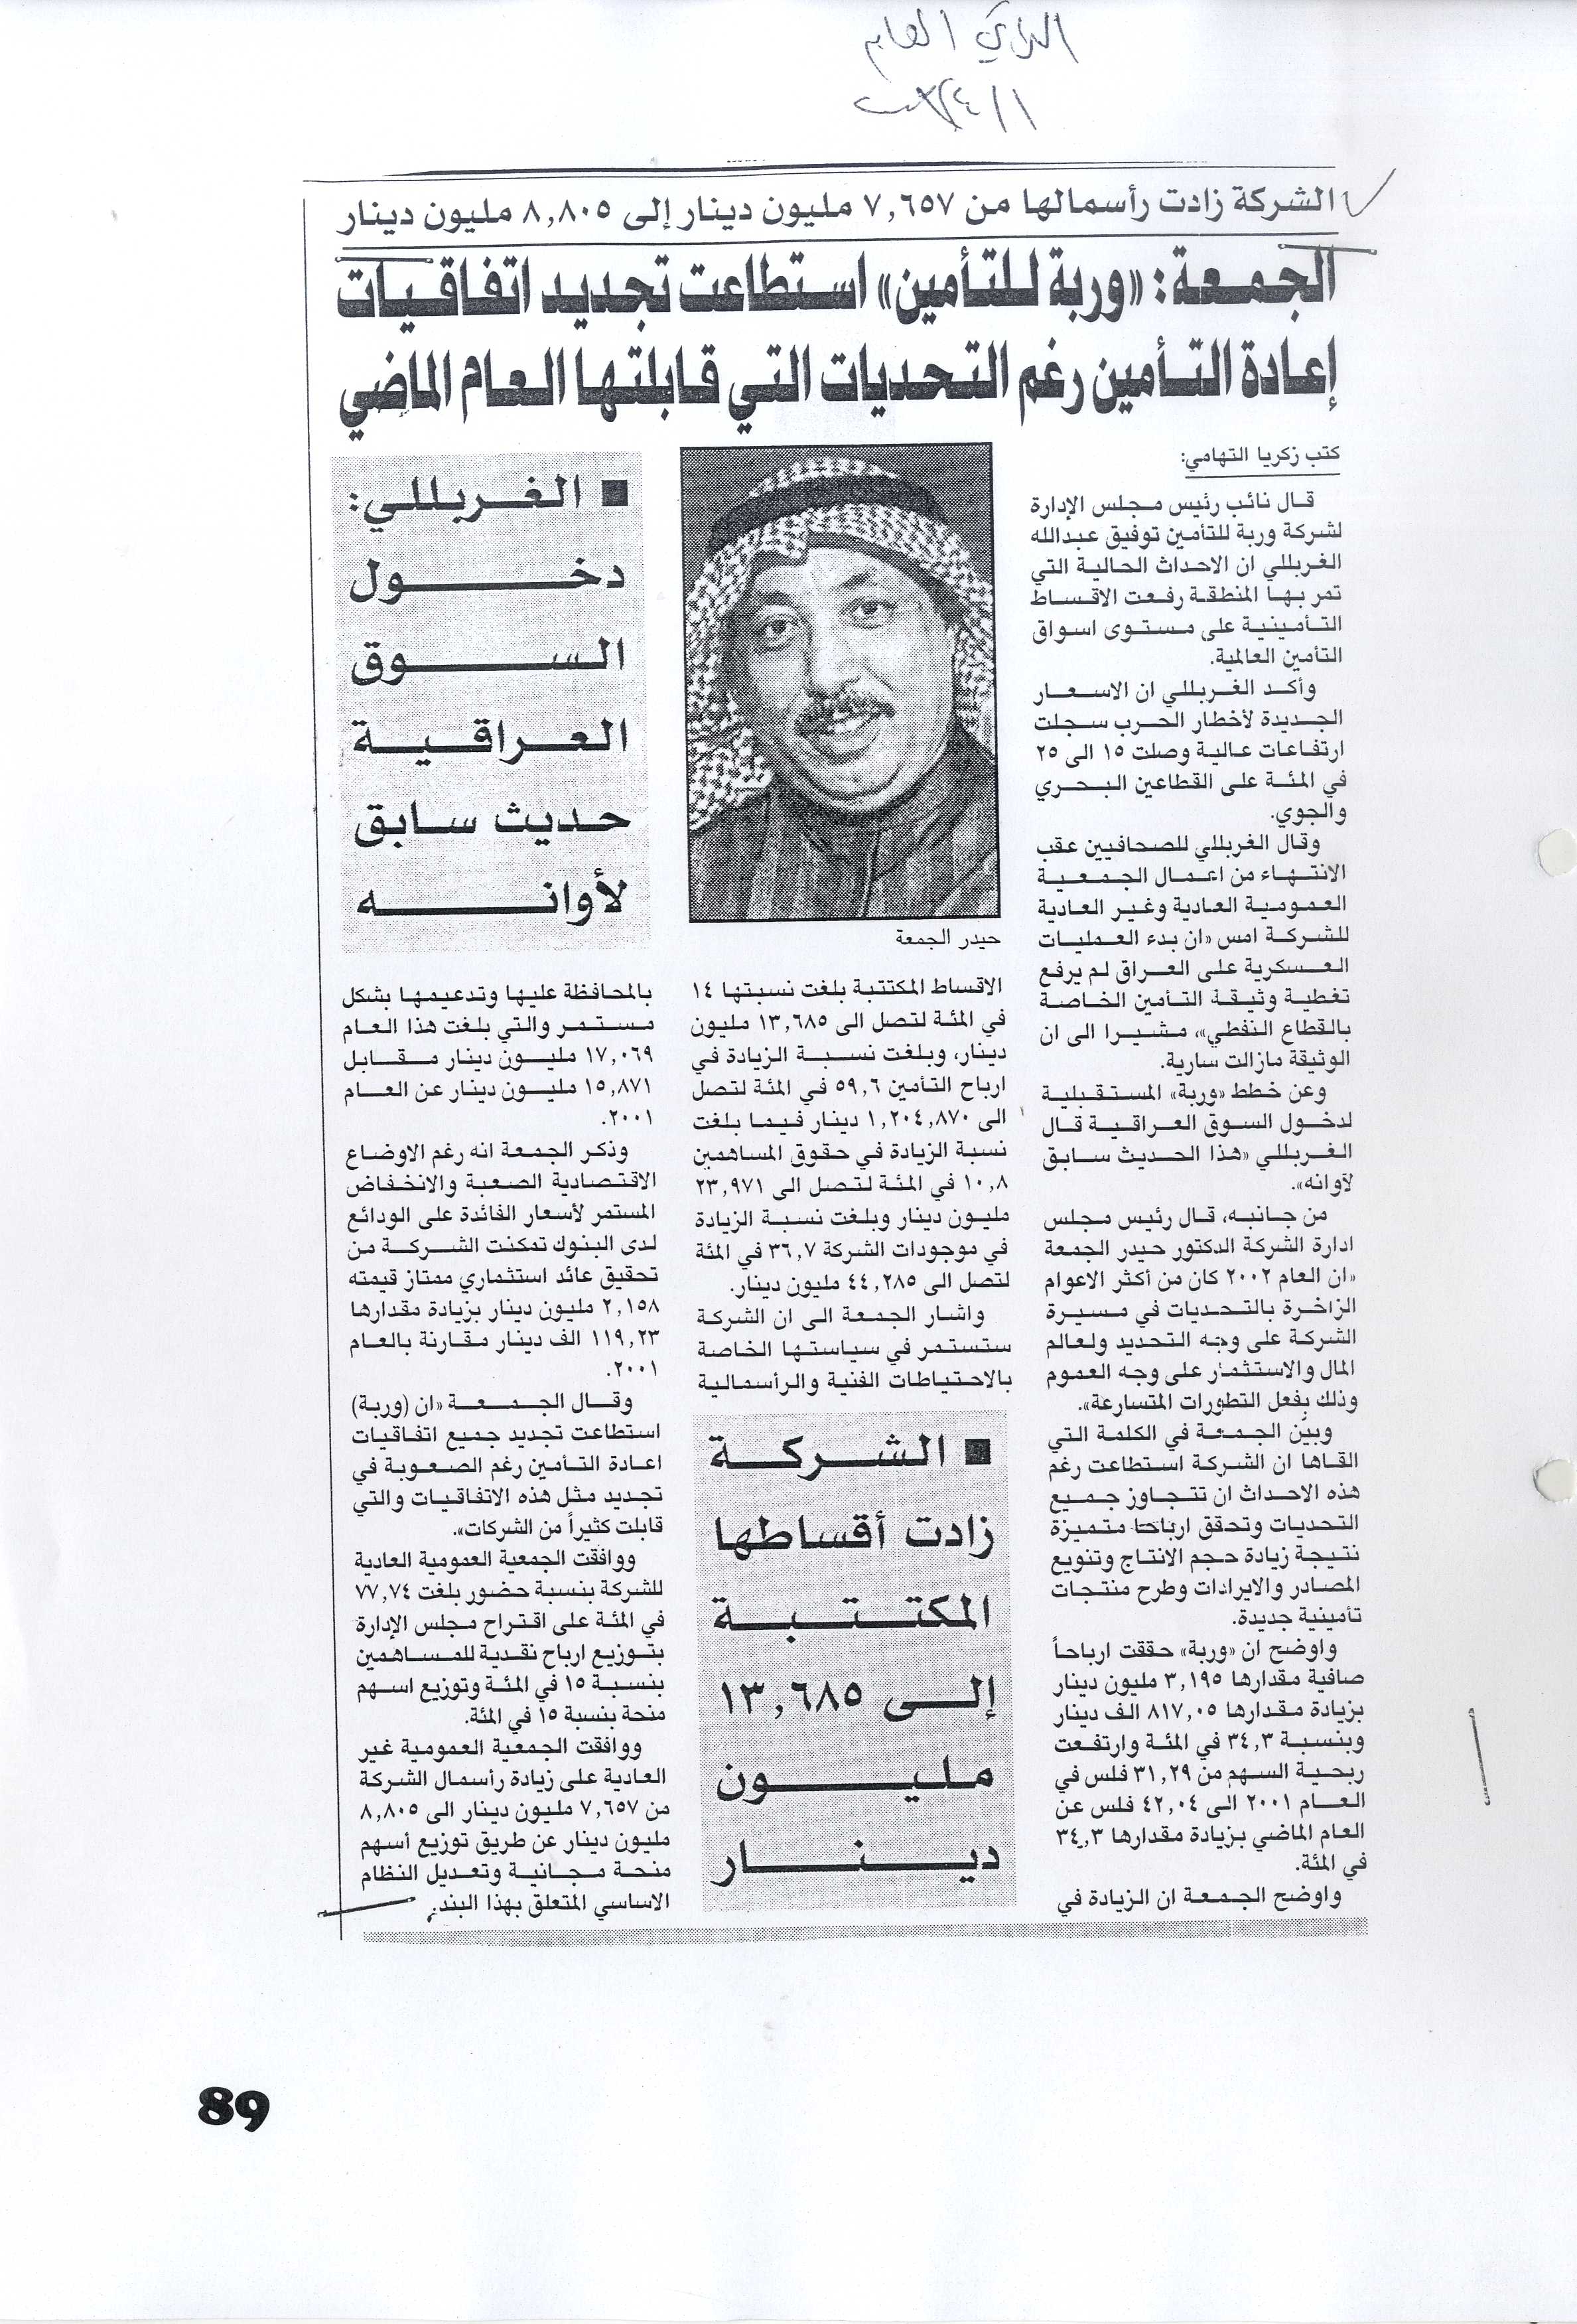 الرأي العام
الشركة زادت رأسمالها من ٧,٦٥٧ مليون دينار إلى ٨,٨٠٥ مليون دينار
الجمعة: «وربة للتأمين» استطاعت تجديد اتفاقيات
إعادة التأمين رغم التحديات التي قابلتها العام الماضي
كتب زكريا التهامي:
قال نائب رئيس مجلس الإدارة
لشركة وربة للتأمين توفيق عبدالله
الغربللي ان الاحداث الحالية التي
تمر بها المنطقة رفعت الاقساط
التأمينية على مستوى اسواق
التأمين العالمية.
وأكد الغربللي ان الاسعار
الجديدة لأخطار الحرب سجلت
ارتفاعات عالية وصلت ١٥ الى ٢٥
في المئة على القطاعين البحري
والجوي.
وقال الغربللي للصحافيين عقب
الانتهاء من اعمال الجمعية
العمومية العادية وغير العادية
للشركة امس «ان بدء العمليات
العسكرية على العراق لم يرفع
تغطية وثيقة التأمين الخاصة
بالقطاع النفطي»، مشيرا الى ان
الوثيقة مازالت سارية.
وعن خطط «وربة» المستقبلية
لدخول السوق العراقية قال
الغربللي «هذا الحديث سابق
لآوانه».
من جانبه، قال رئيس مجلس
ادارة الشركة الدكتور حيدر الجمعة
«ان العام ٢٠٠٢ كان من أكثر الاعوام
الزاخرة بالتحديات في مسيرة
الشركة على وجه التحديد ولعالم
المال والاستثمار على وجه العموم
وذلك بفعل التطورات المتسارعة».
وبيّن الجمعة في الكلمة التي
القاها ان الشركة استطاعت رغم
هذه الاحداث ان تتجاوز جميع
التحديات وتحقق ارباحا متميزة
نتيجة زيادة حجم الانتاج وتنويع
المصادر والايرادات وطرح منتجات
تأمينية جديدة.
واوضح ان «وربة» حققت ارباحاً
صافية مقدارها ٣,١٩٥ مليون دينار
بزيادة مقدارها ٨١٧,٠٥ الف دينار
وبنسبة ٣٤,٣ في المئة وارتفعت
ربحية السهم من ٣١,٢٩ فلس في
العام ٢٠٠١ الى ٤٢,٠٤ فلس عن
العام الماضي بزيادة مقدارها ٣٤,٣
في المئة.
واوضح الجمعة ان الزيادة في
حيدر الجمعة
الاقساط المكتتبة بلغت نسبتها ١٤
في المئة لتصل الى ١٣,٦٨٥ مليون
دينار، وبلغت نسبة الزيادة في
ارباح التأمين ٥٩,٦ في المئة لتصل
الى ١,٢٠٤,٨٧٠ دينار فيما بلغت
نسبة الزيادة في حقوق المساهمين
١٠,٨ في المئة لتصل الى ٢٣,٩٧١
مليون دينار وبلغت نسبة الزيادة
في موجودات الشركة ٣٦,٧ في المئة
لتصل الى ٤٤,٢٨٥ مليون دينار.
واشار الجمعة الى ان الشركة
ستستمر في سياستها الخاصة
بالاحتياطات الفنية والرأسمالية
■ الشركة
زادت أقساطها
المكتتبة
إلى ١٣,٦٨٥
مليون
دينار
■ الغربللي:
دخول
السوق
العراقية
حديث سابق
لأوانه
بالمحافظة عليها وتدعيمها بشكل
مستمر والتي بلغت هذا العام
١٧,٠٦٩ مليون دينار مقابل
١٥,٨٧١ مليون دينار عن العام
٢٠٠١.
وذكر الجمعة انه رغم الاوضاع
الاقتصادية الصعبة والانخفاض
المستمر لأسعار الفائدة على الودائع
لدى البنوك تمكنت الشركة من
تحقيق عائد استثماري ممتاز قيمته
٢,١٥٨ مليون دينار بزيادة مقدارها
١١٩,٢٣ الف دينار مقارنة بالعام
٢٠٠١.
وقال الجمعة «ان (وربة)
استطاعت تجديد جميع اتفاقيات
اعادة التأمين رغم الصعوبة في
تجديد مثل هذه الاتفاقيات والتي
قابلت كثيراً من الشركات».
ووافقت الجمعية العمومية العادية
للشركة بنسبة حضور بلغت ٧٧,٧٤
في المئة على اقتراح مجلس الإدارة
بتوزيع ارباح نقدية للمساهمين
بنسبة ١٥ في المئة وتوزيع اسهم
منحة بنسبة ١٥ في المئة.
ووافقت الجمعية العمومية غير
العادية على زيادة رأسمال الشركة
من ٧,٦٥٧ مليون دينار الى ٨,٨٠٥
مليون دينار عن طريق توزيع أسهم
منحة مجانية وتعديل النظام
الاساسي المتعلق بهذا البند.
89